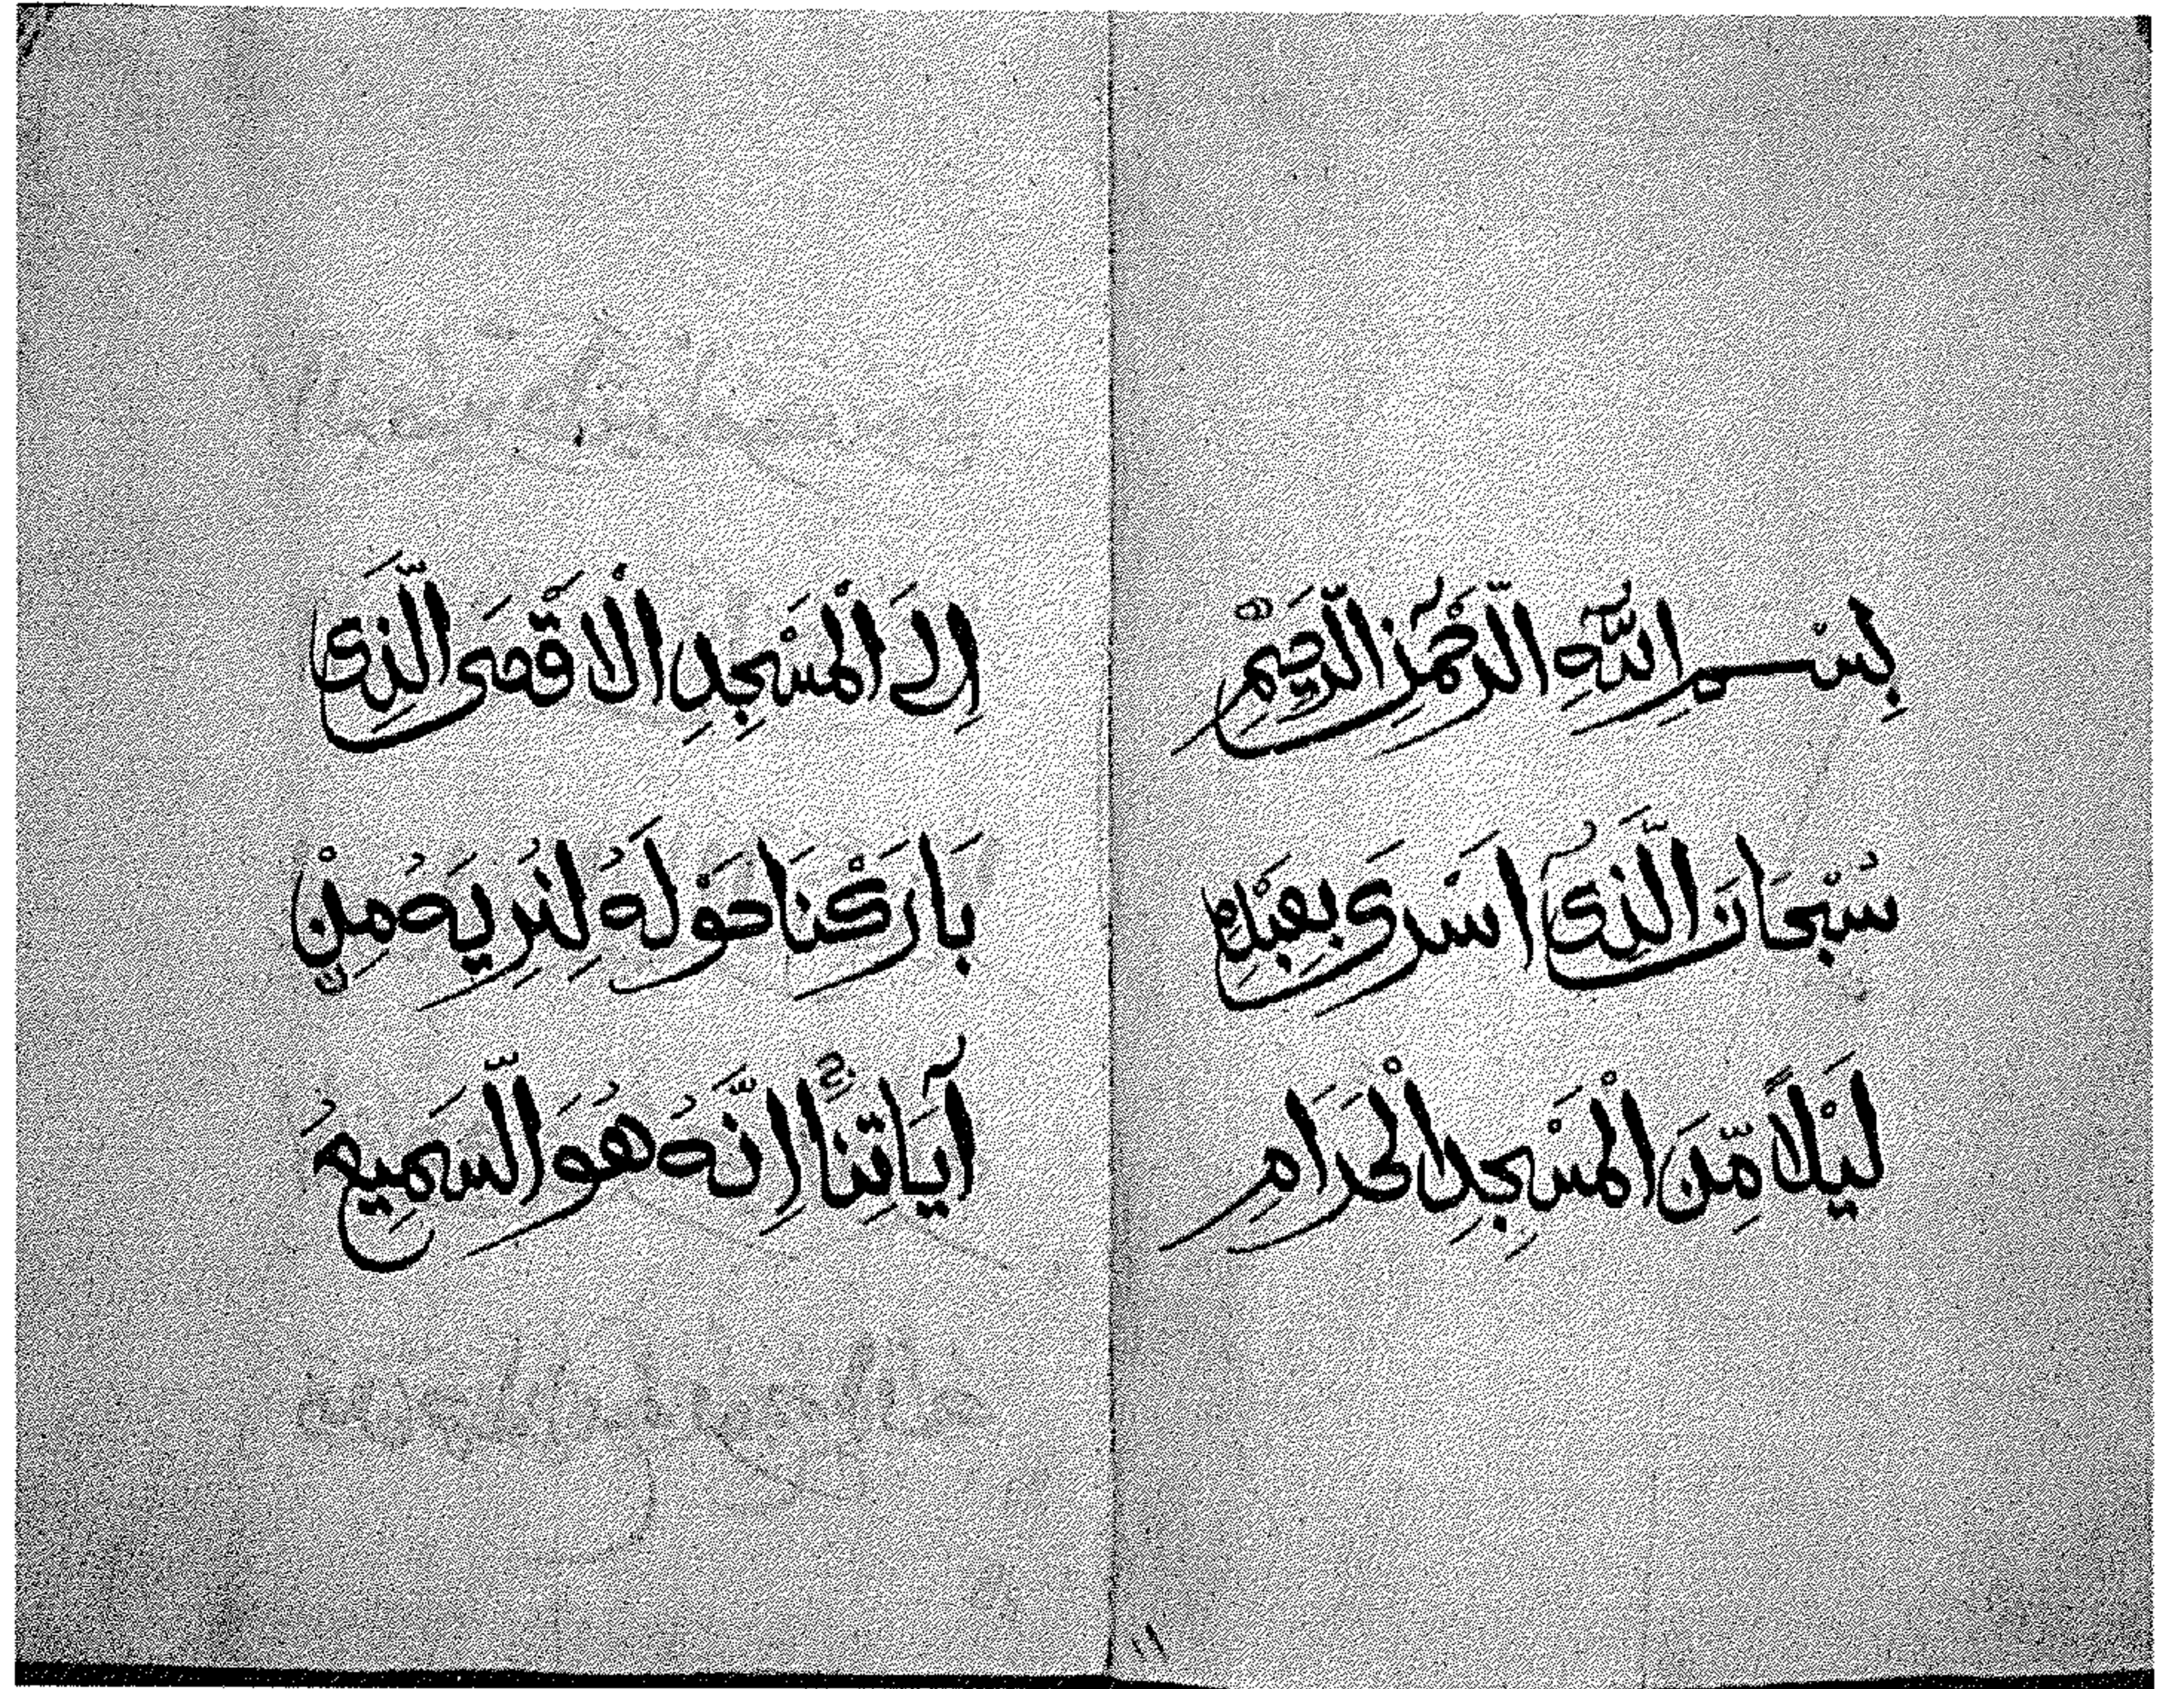 بِسْمِ اللَّهِ الرَّحْمٰنِ الرَّحِيمِ
سُبْحَانَ الَّذِى اَسْرَى بِعَبْدِهِ
لَيْلًا مِّنَ الْمَسْجِدِ الْحَرَامِ
إِلَى الْمَسْجِدِ الْأَقْصَى الَّذِى
بَارَكْنَا حَوْلَهُ لِنُرِيَهُ مِنْ
آيَاتِنَا إِنَّهُ هُوَ السَّمِيعُ